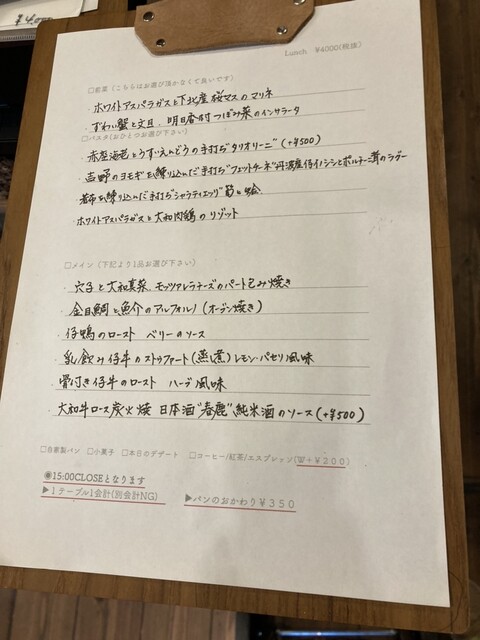 ¥4,000
Lunch ¥4000(税抜)
□前菜（こちらはお選び頂かなくて良いです）
・ホワイトアスパラガスと下北産桜マスのマリネ
・ずわい蟹と文旦、明日香村つぼみ菜のインサラータ
□パスタ（おひとつお選び下さい）
・赤座海老とうすいえんどうの手打ち"タリオリーニ"(+¥500)
・吉野のヨモギを練り込んだ手打ち"フェットチーネ"丹波産仔イノシシとポルチーニ茸のラグー
・若布を練り込んだ手打ち"シャラティエッリ"筍と蛤
・ホワイトアスパラガスと大和肉鶏のリゾット
□メイン（下記より1品お選び下さい）
・穴子と大和真菜、モッツァレラチーズのパート包み焼き
・金目鯛と魚介のアルフォルノ(オーブン焼き)
・仔鴨のロースト ベリーのソース
・乳飲み仔牛のストゥファート(蒸煮)レモン・パセリ風味
・骨付き仔牛のロースト ハーブ風味
・大和牛ロース炭火焼 日本酒"春鹿"純米酒のソース(+¥500)
□自家製パン □小菓子 □本日のデザート □コーヒー/紅茶/エスプレッソ(W+￥200)
◉15:00CLOSEとなります
▶１テーブル１会計(別会計NG) ▶パンのおかわり￥３５０